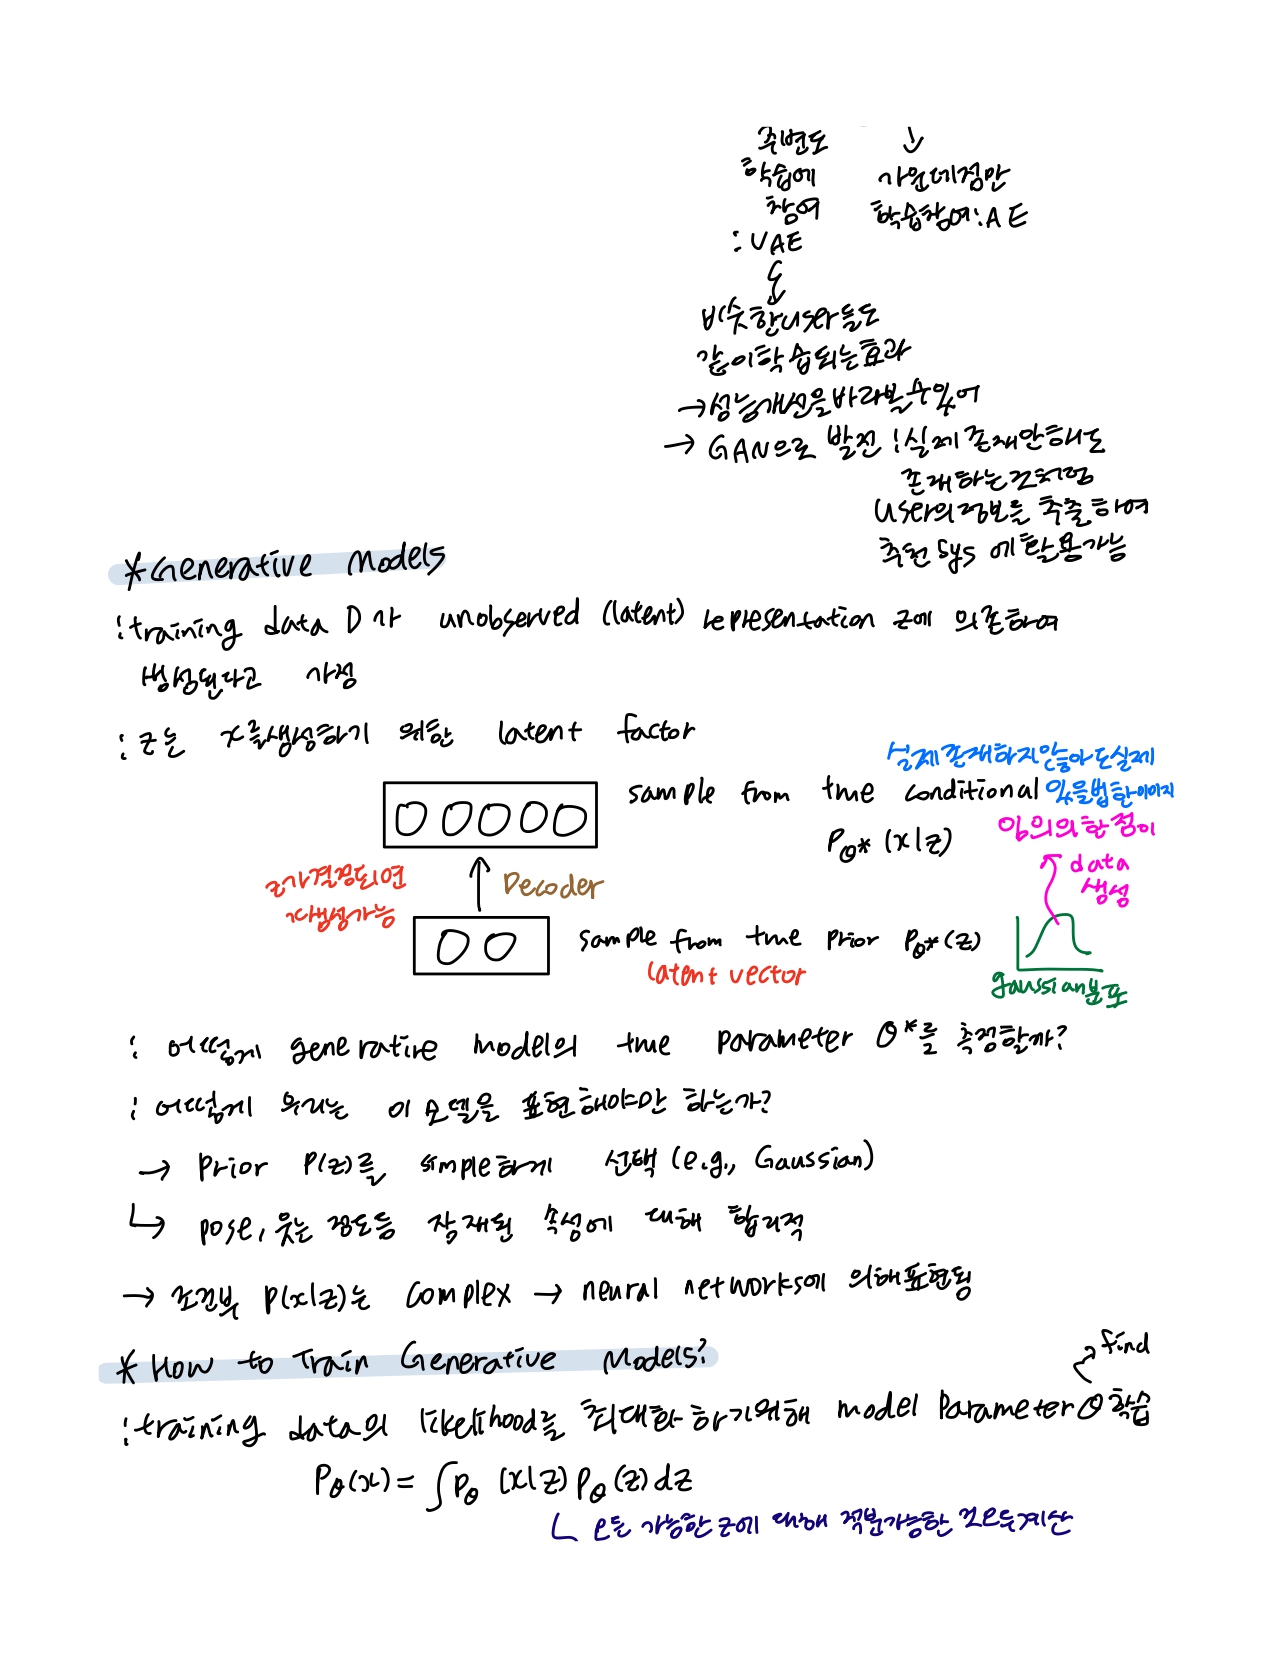 주변도 ↓
학습에 가운데점만
참여 학습참여:AE
: VAE
비슷한 user들도
같이 학습되는 효과
→ 성능개선을 바라볼 수 있어
→ GAN으로 발전 : 실제 존재 안해도
존재하는 것처럼
user의 정보를 추출하여
추천 sys 에 활용가능
* Generative Models
: training data D가 unobserved (latent) representation z에 의존하여
생성된다고 가정
: z는 x를 생성하기 위한 latent factor
실제 존재하지 않아도 실제
sample from true conditional 있을법한 이미지
Pθ* (x|z) 임의의 한 점이
data
생성
z가 결정되면
x생성가능
Decoder
sample from true prior Pθ*(z)
latent vector
gaussian분포
: 어떻게 generative model의 true parameter θ*를 측정할까?
: 어떻게 우리는 이 모델을 표현해야만 하는가?
→ Prior P(z)를 simple하게 선택 (e.g., Gaussian)
↳ pose, 웃는 정도등 잠재된 속성에 대해 합리적
→ 조건부 P(x|z)는 complex → neural networks에 의해 표현됨
* How to Train Generative Models?
find
: training data의 likelihood를 최대화 하기위해 model parameter θ 학습
Pθ(x) = ∫Pθ (x|z) Pθ (z) dz
↳ 모든 가능한 z에 대해 적분가능한 것 모두 계산